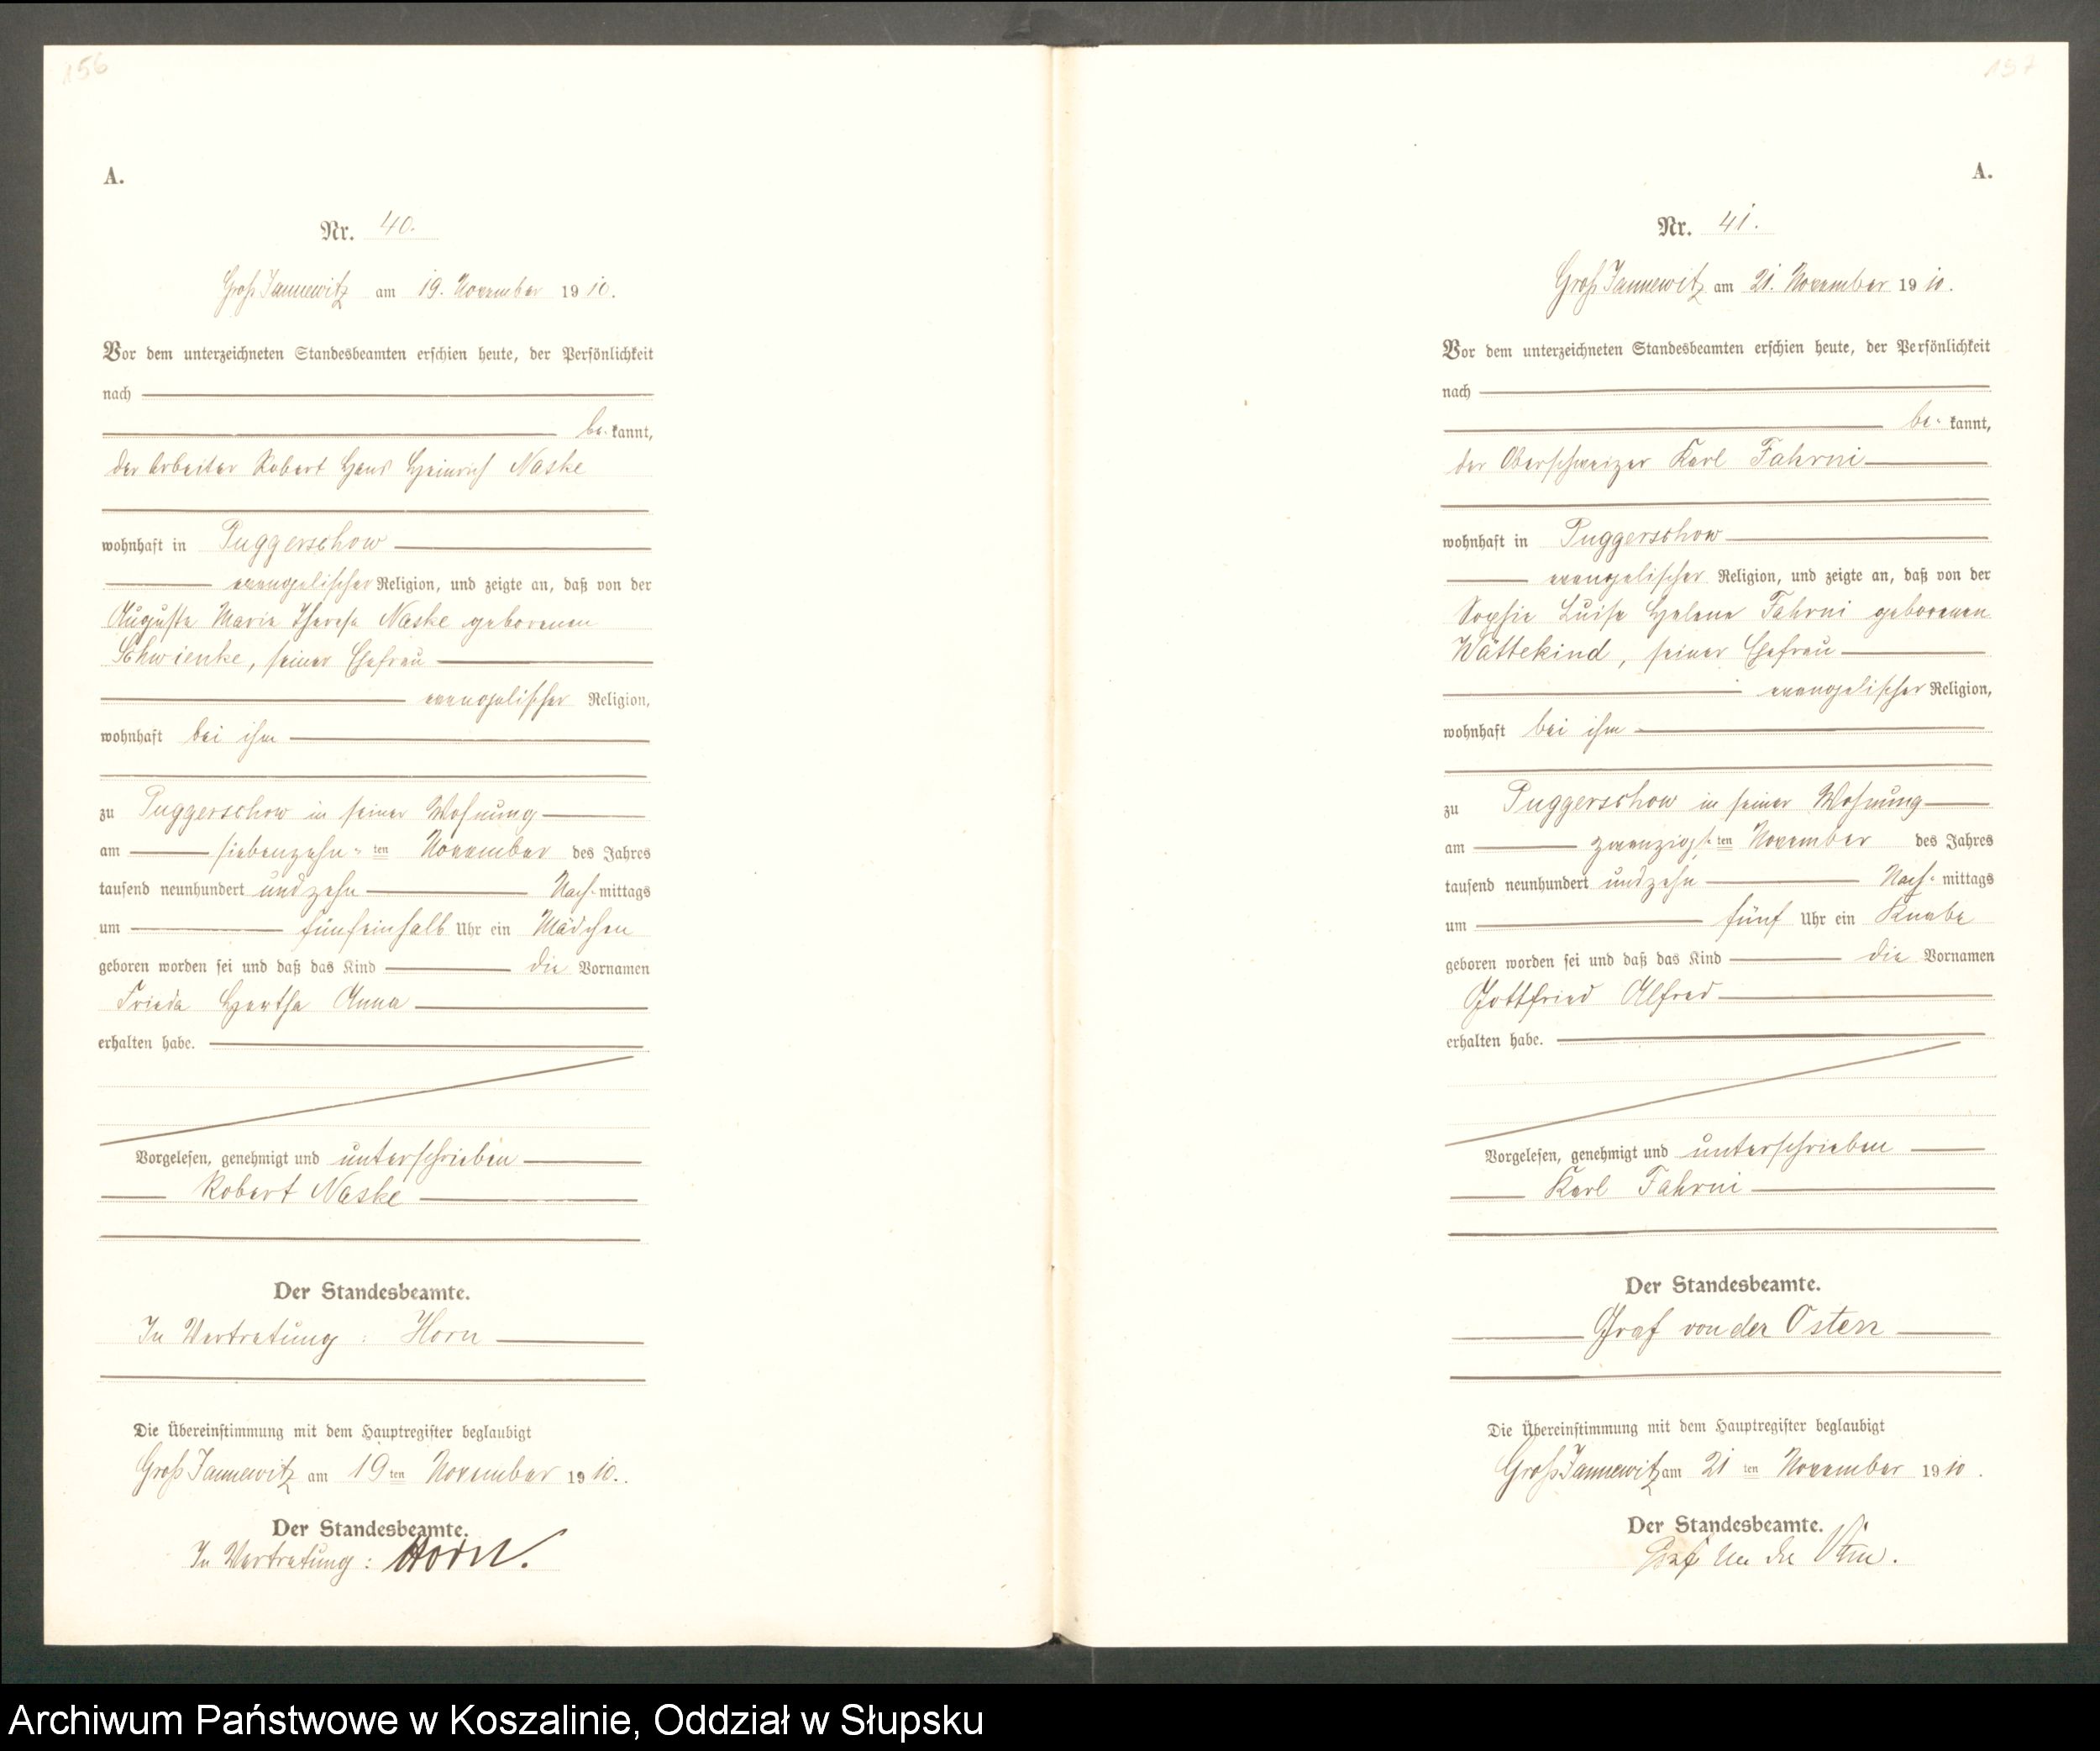 156
A.
Nr. 40.
Groß Jannewitz am 19. November 1910.
Vor dem unterzeichneten Standesbeamten erschien heute, der Persönlichkeit
nach
be- kannt,
der Arbeiter Robert Hans Heinrich Naske
wohnhaft in Puggerschow
evangelischer Religion, und zeigte an, daß von der
Auguste Marie Therese Naske geborenen
Schwienke, seiner Ehefrau
evangelischer Religion,
wohnhaft bei ihm
zu Puggerschow in seiner Wohnung
am siebenzehn-ten November des Jahres
tausend neunhundert undzehn Nach-mittags
um fünfeinhalb Uhr ein Mädchen
geboren worden sei und daß das Kind die Vornamen
Frieda Hertha Anna
erhalten habe.
Vorgelesen, genehmigt und unterschrieben
Robert Naske
Der Standesbeamte.
In Vertretung: Horn
Die Übereinstimmung mit dem Hauptregister beglaubigt
Groß Jannewitz am 19ten November 1910.
Der Standesbeamte.
In Vertretung: Horn.
157
A.
Nr. 41.
Groß Jannewitz am 21. November 1910.
Vor dem unterzeichneten Standesbeamten erschien heute, der Persönlichkeit
nach
be- kannt,
der Oberschweizer Karl Fahrni
wohnhaft in Puggerschow
evangelischer Religion, und zeigte an, daß von der
Sophie Luise Helene Fahrni geborenen
Wättekind, seiner Ehefrau
evangelischer Religion,
wohnhaft bei ihm
zu Puggerschow in seiner Wohnung
am zwanzigst-ten November des Jahres
tausend neunhundert undzehn Nach-mittags
um fünf Uhr ein Knabe
geboren worden sei und daß das Kind die Vornamen
Gottfried Alfred
erhalten habe.
Vorgelesen, genehmigt und unterschrieben
Karl Fahrni
Der Standesbeamte.
Graf von der Osten
Die Übereinstimmung mit dem Hauptregister beglaubigt
Groß Jannewitz am 21ten November 1910.
Der Standesbeamte.
Graf von der Osten.
Archiwum Państwowe w Koszalinie, Oddział w Słupsku